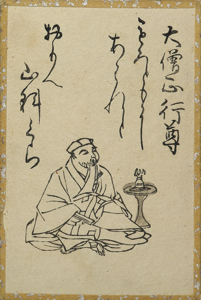 大僧正行尊
もろともに
あはれと
おもへ
山さくら